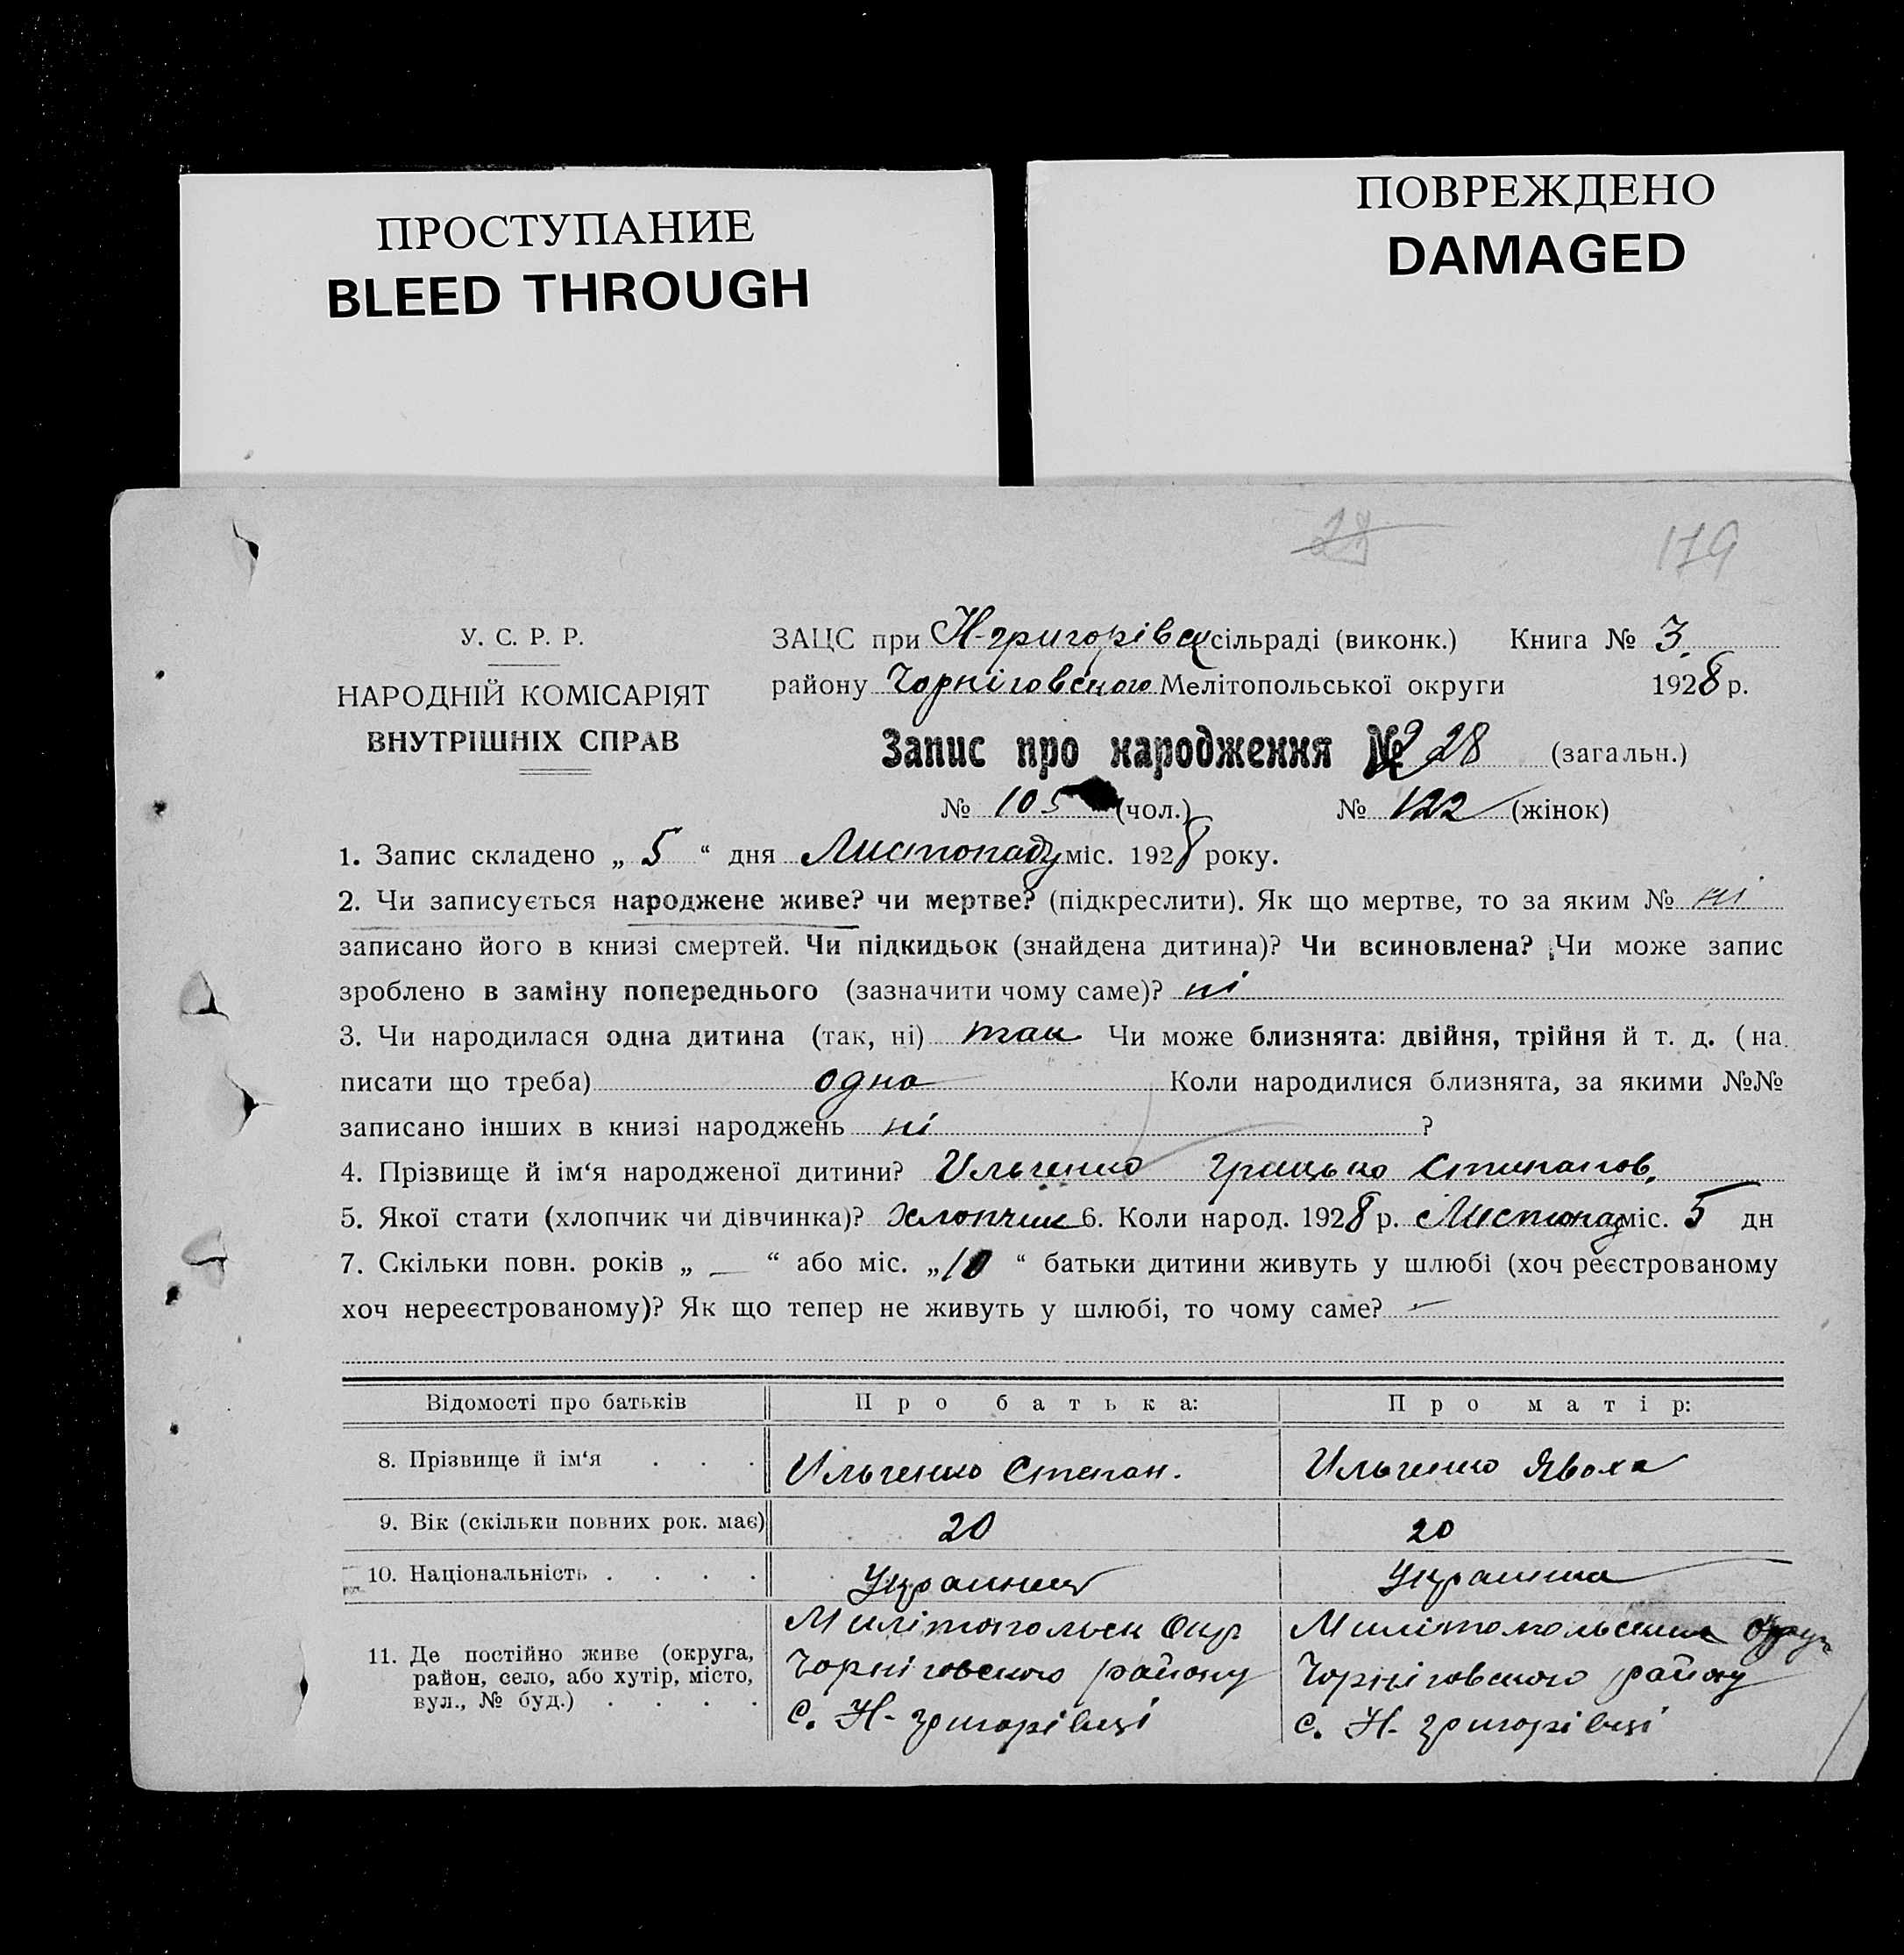 ПРОСТУПАНИЕ
BLEED THROUGH
ПОВРЕЖДЕНО
DAMAGED
28 179
У. С. Р. Р.
НАРОДНІЙ КОМІСАРІЯТ
ВНУТРІШНІХ СПРАВ
ЗАЦС при Н-григорівск сільраді (виконк.) Книга № 3.
району Чорніговского Мелітопольської округи 1928 р.
Запис про народження № 228 (загальн.)
№ 105 (чол.) № 122 (жінок)
1. Запис складено „ 5 “ дня Листопаду міс. 1928 року.
2. Чи записується народжене живе? чи мертве? (підкреслити). Як що мертве, то за яким № ні
записано його в книзі смертей. Чи підкидьок (знайдена дитина)? Чи всиновлена? Чи може запис
зроблено в заміну попереднього (зазначити чому саме)? ні
3. Чи народилася одна дитина (так, ні) так Чи може близнята: двійня, трійня й т. д. (на
писати що треба) одно Коли народилися близнята, за якими №№
записано інших в книзі народжень ні ?
4. Прізвище й ім‘я народженої дитини? Ильченко Грицько Стипанов.
5. Якої стати (хлопчик чи дівчинка)? Хлопчик 6. Коли народ. 1928 р. Листопад міс. 5 дн
7. Скільки повн. років „ — “ або міс. „ 10 “ батьки дитини живуть у шлюбі (хоч реєстрованому
хоч нереєстрованому)? Як що тепер не живуть у шлюбі, то чому саме? —
Відомості про батьків Про батька: Про матір:
8. Прізвище й ім‘я . . . Ильченко Степан. Ильченко Явоха
9. Вік (скільки повних рок. має) 20 20
10. Національність . . . . Украинец Украинка
11. Де постійно живе (округа, район, село, або хутір, місто, вул., № буд.) . . . .
Милітопольск Окр
Чорніговского району
с. Н-григорівці
Милітопольскик
Чорніговского району
с. Н-григорівці